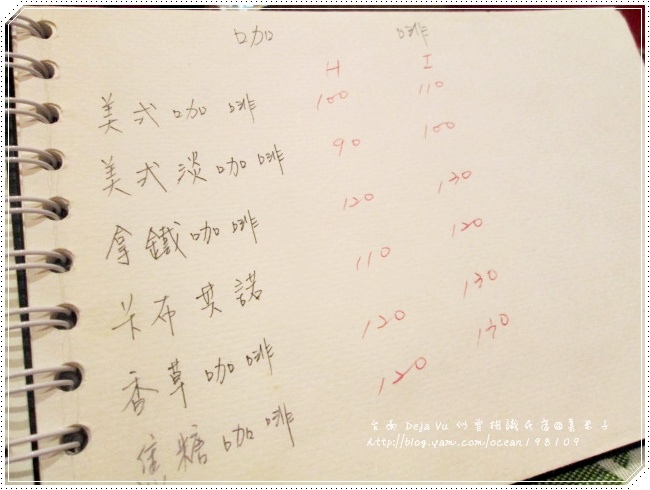 咖 啡
H I
美式咖啡 100 110
美式淡咖啡 90 100
拿鐵咖啡 120 130
卡布其諾 110 120
香草咖啡 120 130
焦糖咖啡 120 130
台南 Deja Vu 似曾相識
http://blog.yam.com/ocean198109